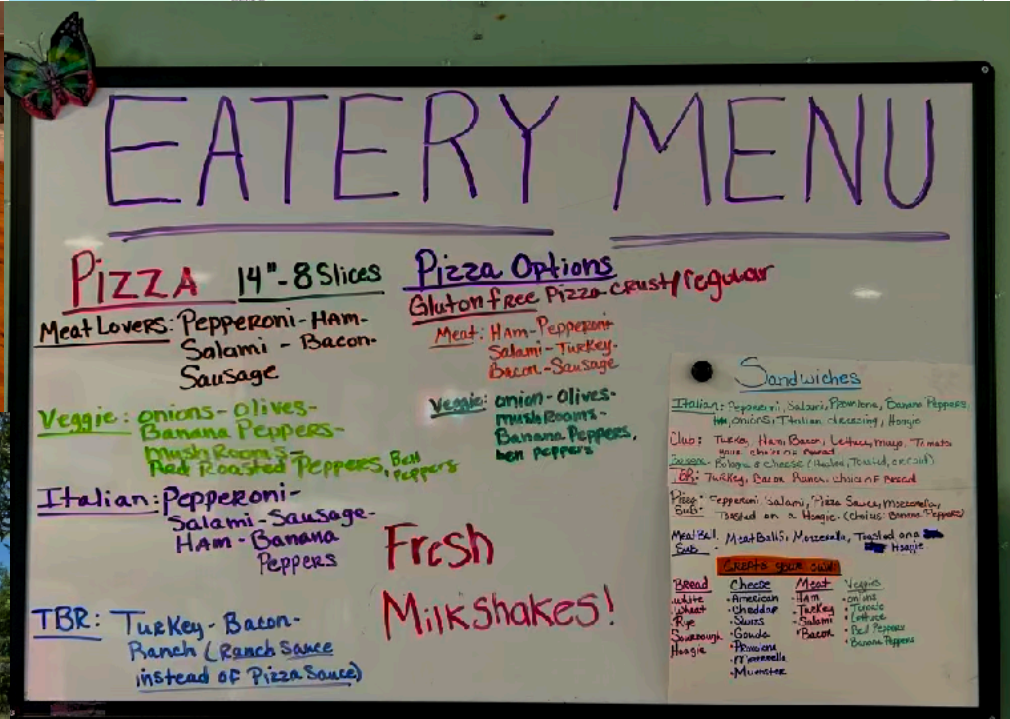 EATERY MENU
PIZZA 14"-8 Slices
Meat Lovers: Pepperoni-HAM-
Salami - Bacon-
Sausage
Veggie: onions-olives-
Banana Peppers-
mushRooms-
Red Roasted Peppers, Bell
Peppers
Italian: Pepperoni-
Salami-Sausage-
HAM-Banana
Peppers
TBR: Turkey-Bacon-
Ranch (Ranch Sauce
instead of Pizza Sauce)
Pizza Options
Gluton free Pizza crust/regular
Meat: HAM-Pepperoni-
Salami-Turkey-
Bacon-Sausage
Veggie: onion-olives-
mushRooms-
Banana Peppers,
ben peppers
Fresh
Milkshakes!
Sandwiches
Italian: Pepperoni, Salami, Provolone, Banana Peppers,
onions, Italian dressing, Hoagie
Club: Turkey, Ham, Bacon, Lettuce, Mayo, Tomato
your choice of Bread
Bologna & cheese (Heated, Toasted, or cold)
TBR: Turkey, Bacon Ranch, choice of Bread
Pizza Pepperoni, Salami, Pizza Sauce, Mozzerella,
Sub: Toasted on a Hoagie. (Banana Peppers)
Meat Ball MeatBalls, Mozzerella, Toasted on a
Sub Hoagie
Create your own!
Bread Cheese Meat Veggies
white •American -HAM -onions
wheat •Cheddar -Turkey •Tomato
Rye •Swiss -Salami •Lettuce
Sourdough •Gouda •Bacon •Bell Peppers
Hoagie •Provolone •Banana Peppers
•Mozzerella
•Muenster